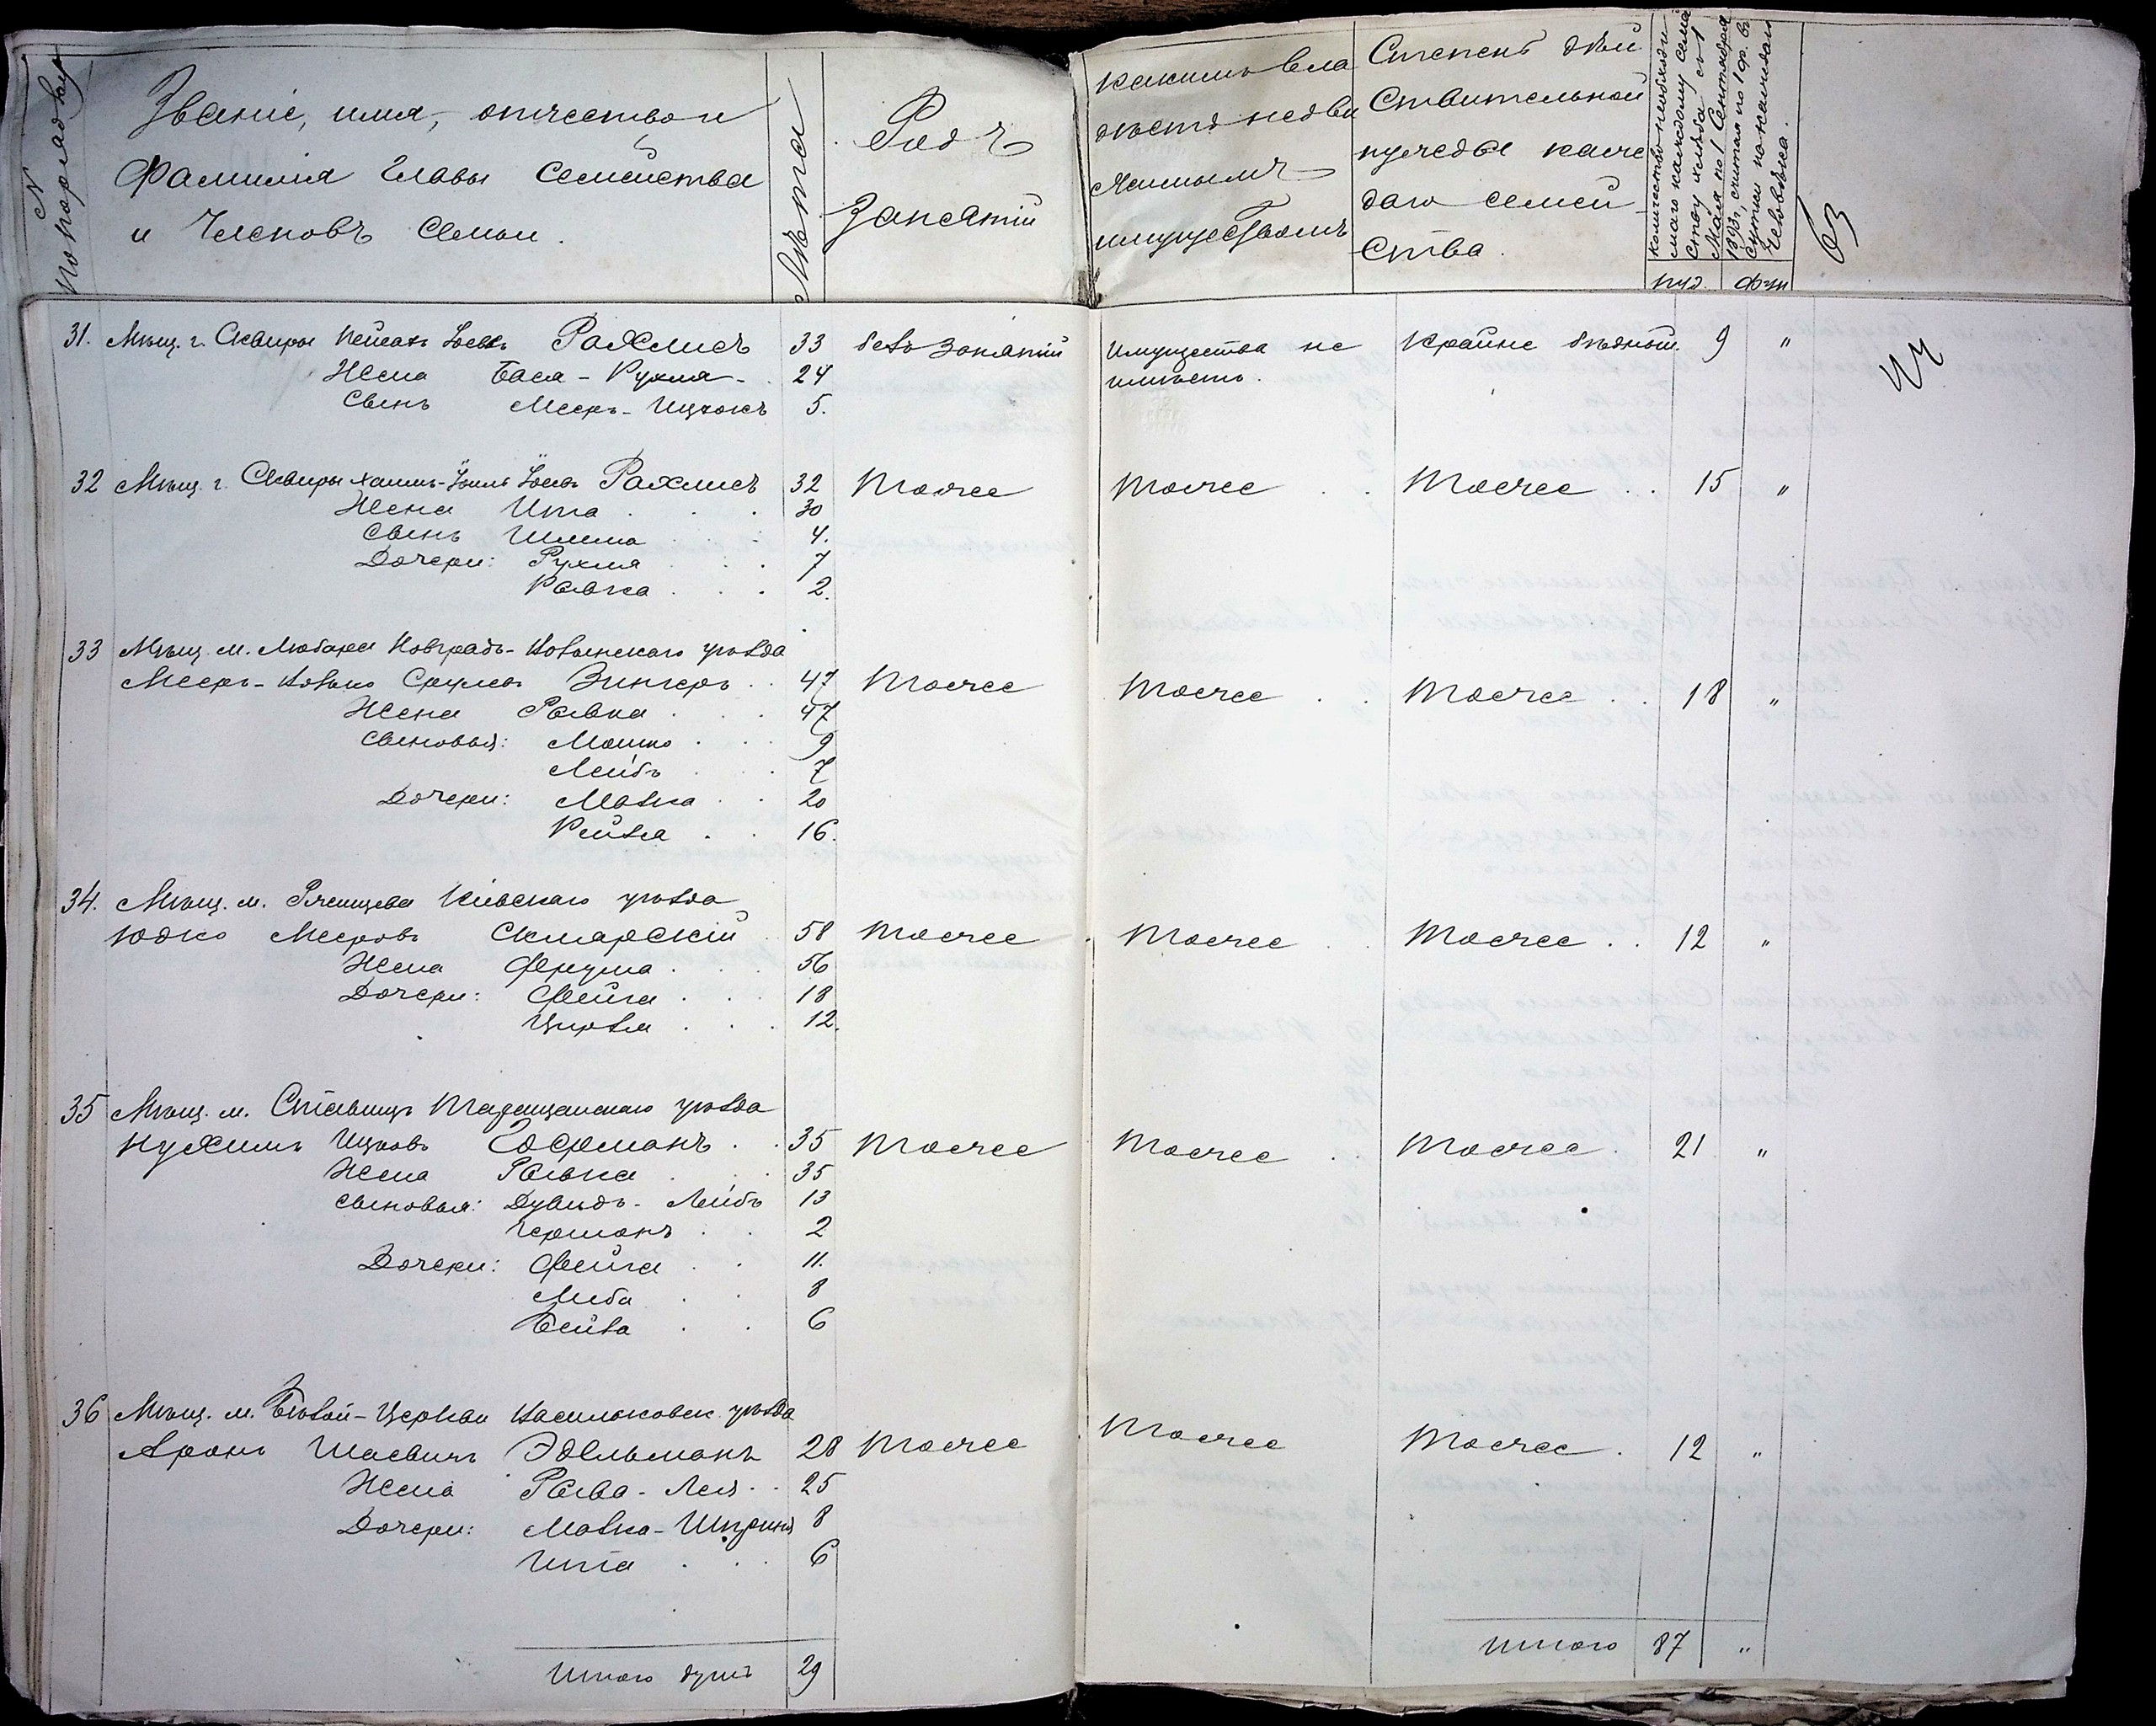 № по порядку
Званіе, имя, отчество и
фамилія главы семейства
и членовъ семьи.
Лѣта
Родъ
занятій
какимъ вла
дѣетъ недви
жимымъ
имуществомъ
Степень дѣй
ствительной
нужды каж
даго семей
ства.
количество необходи
маго каждому семей
ству хлѣба съ 1
Мая по 1 Сентября
1893 г., считая по 1 ф. въ
сутки на каждаго
человѣка.
пуд. фун
63
31. Мѣщ. г. Сквиры Пейсахъ Іосевъ Рахлисъ 33 безъ занятій Имущества не крайне бѣдный. 9 "
имѣетъ.
Жена Бася-Рухля 24
Сынъ Мееръ-Ицхокъ 5.
32 Мѣщ. г. Сквиры Хаимъ-Іоилъ Іосевъ Рахлисъ 32 Тоже Тоже Тоже 15 "
Жена Ита 30
Сынъ Шлема 4.
Дочери: Рухля 7
Ривка 2.
33 Мѣщ. м. Любара Новградъ-Волынскаго уѣзда
Мееръ-Волько Срулевъ Зингеръ 47 Тоже Тоже Тоже 18 "
Жена Ривка 47
Сыновья: Мошко 9
Лейбъ 7
Дочери: Малка 20
Рейзя 16.
34. Мѣщ. м. Ржищева Кіевскаго уѣзда
Юдко Мееровъ Склярскій 58 Тоже Тоже Тоже 12 "
Жена Фрума 56
Дочери: Фейга 18
Цирля 12.
35 Мѣщ. м. Ставищъ Таращанскаго уѣзда
Нухимъ Ицковъ Гофманъ 35 Тоже Тоже Тоже 21 "
Жена Ривка 35
Сыновья: Дувидъ-Лейбъ 13
Германъ 2
Дочери: Фейга 11.
Либа 8
Бейла 6
36 Мѣщ. м. Бѣлой-Церкви Васильковск. уѣзда
Аронъ Шаевичъ Эдельманъ 28 Тоже Тоже Тоже 12 "
Жена Рыва-Лея 25
Дочери: Малка-Шприня 8
Ита 6
Итого душъ 29 Итого 87 "